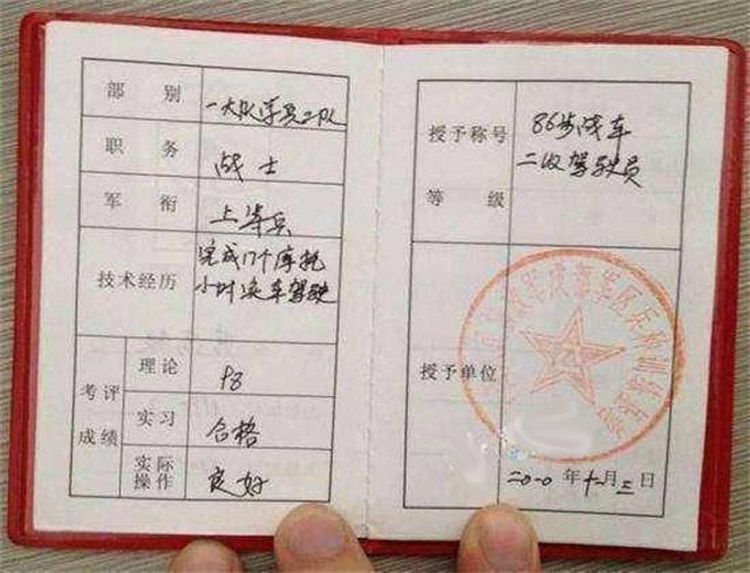 部 别
一大队学员二队
职 务
战士
军 衔
上等兵
技术经历
完成17个摩托
小时实车驾驶
考评
成绩
理论
98
实习
合格
实际
操作
良好
授予称号
等 级
86步战车
二级驾驶员
授予单位
二〇一〇年十一月三日